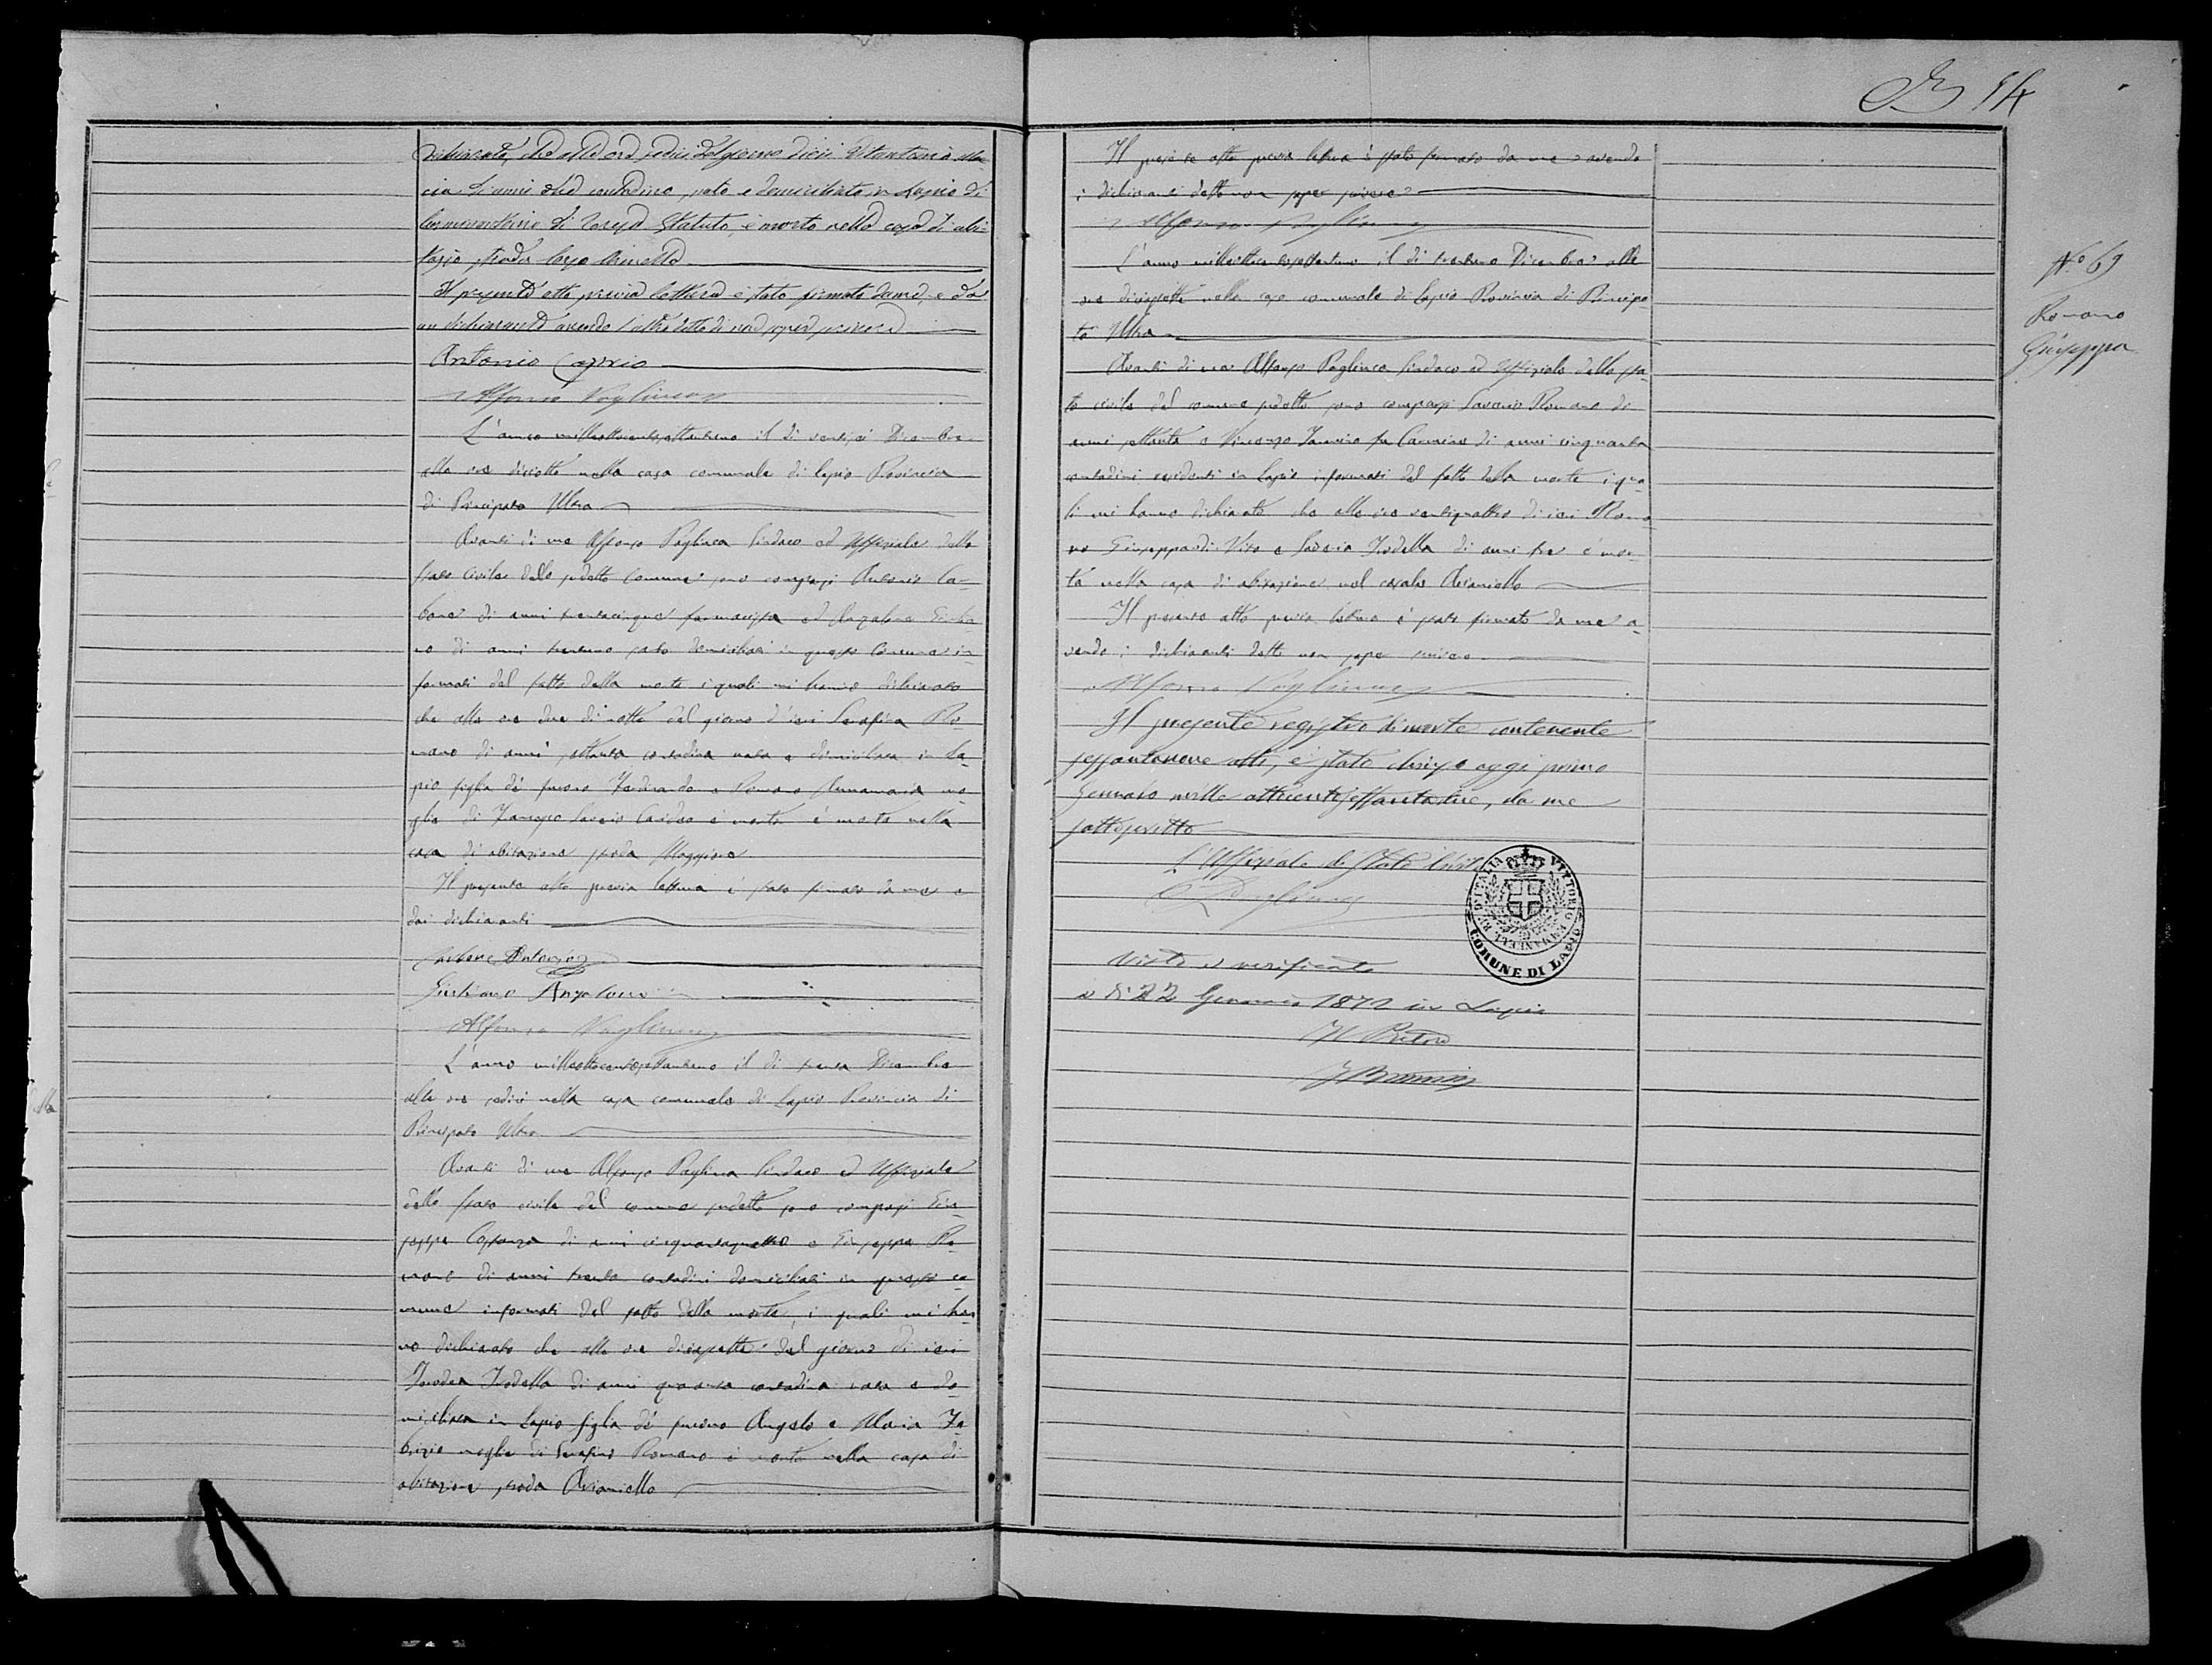 dichiarato, che alle ore sedici del giorno di ieri Vitantonio
di anni contadino, nato e domiciliato in Lapio di
di Statuto, è morto nella casa di abi-
tazio strada largo
Il presente atto previa lettura è stato firmato da me, e da
un dichiarante avendo l'altro detto di non saper scrivere
Antonio Caprio
Alfonso Pagliuca
L'anno milleottocentosettantuno il dì ventisei Dicembre
alle ore diciotto nella casa comunale di Lapio Provincia
di Principato Ultra
Avanti di me Alfonso Pagliuca Sindaco ed Uffiziale dello
stato civile dello sudetto Comune sono comparsi Antonio Ca-
rbone di anni trentacinque farmacista ed Angelo
di anni trentuno domiciliati in questo Comune in-
formati del fatto della morte i quali mi hanno dichiarato
che alle ore due di notte del giorno d'ieri Serafina Ro-
mano di anni settanta contadina nata e domiciliata in La-
pio figlia di furono e Romano Annamaria mo-
glie di Saverio è morta è morta nella
casa di abitazione strada Maggiore
Il presente atto previa lettura è stato firmato da me e
dai dichiaranti
Carbone Antonio
Alfonso Pagliuca
L'anno milleottocentosettantuno il dì trenta Dicembre
alle ore sedici nella casa comunale di Lapio Provincia di
Principato Ultra
Avanti di me Alfonso Pagliuca Sindaco ed Uffiziale
dello stato civile del comune sudetto sono comparsi Giu-
seppe Costanzo di anni cinquantaquattro e Giuseppe Ro-
mano di anni trenta contadini domiciliati in questo co-
mune informati del fatto della morte, i quali mi han-
no dichiarato che alle ore diciasette del giorno di ieri
Trodella di anni quaranta contadina nata e do-
miciliata in Lapio figlia di furono Angelo e Maria Fa-
brizio moglie di Serafino Romano è morta nella casa di
abitazione strada Arianiello
14
Il presente atto previa lettura è stato firmato da me avendo
i dichiaranti detto non saper scrivere
Alfonso Pagliuca
L'anno milleottocentosettantuno il dì trentuno Dicembre alle
ore diciasette nella casa comunale di Lapio Provincia di Principa-
to Ultra
Avanti di me Alfonso Pagliuca Sindaco ed Uffiziale dello sta-
to civile del comune sudetto sono comparsi Saverio Romano di
anni settanta e Vincenzo fu Carmine di anni cinquanta
contadini residenti in Lapio informati del fatto della morte i qua-
li mi hanno dichiarato che alle ore ventiquattro di ieri Roma-
no Giuseppa di Vito e Saveria Trodella di anni tre è mor-
ta nella casa di abitazione nel casale Arianiello
Il presente atto previa lettura è stato firmato da me a-
vendo i dichiaranti detto non saper scrivere
Alfonso Pagliuca
Il presente registro di morte contenente
sessantanove atti, è stato chiuso oggi primo
Gennaio mille ottocentosettantadue, da me
sottoscritto
L'Uffiziale di Stato Civile
Pagliuca
Visto e verificato
a dì 22 Gennaio 1872 in Lapio
Il Pretore
COMUNE DI LAPIO
N.o 69
Romano
Giuseppa